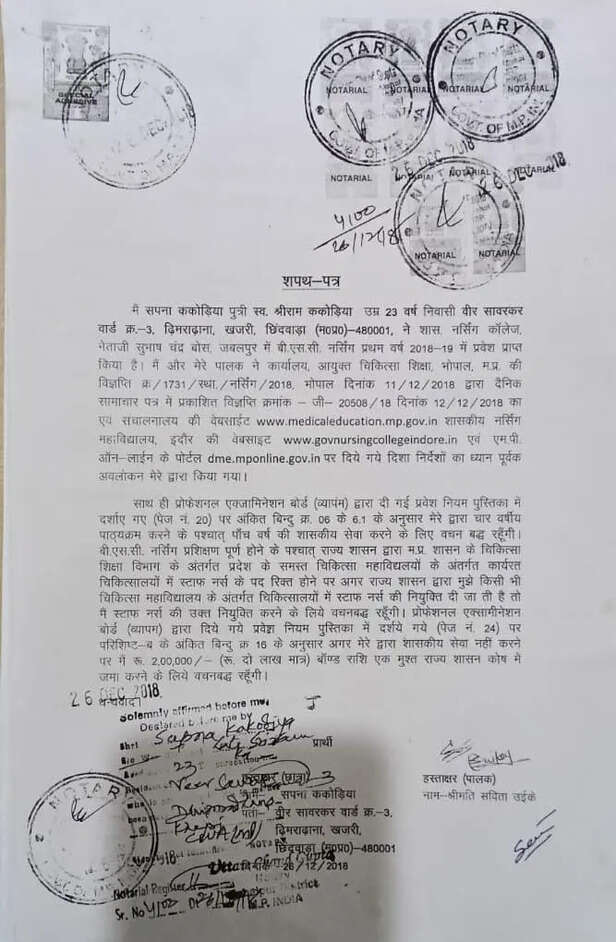 SPECIAL
ADHESIVE
NOTARY
NOTARIAL
GOVT. OF M.P. INDIA
NOTARY
NOTARIAL NOTARIAL
GOVT. OF M.P. IN
26 DEC 2018
NOTARIAL NOTARIAL
26 DEC 2018
NOTARIAL NOTARIAL
4100
26/12/18
शपथ–पत्र
मैं सपना ककोडिया पुत्री स्व. श्रीराम ककोडिया उम्र 23 वर्ष निवासी वीर सावरकर
वार्ड क्र.–3, ढिमराढ़ाना, खजरी, छिंदवाड़ा (म०प्र०)–480001, ने शास. नर्सिंग कॉलेज,
नेताजी सुभाष चंद्र बोस, जबलपुर में बी.एस.सी. नर्सिंग प्रथम वर्ष 2018–19 में प्रवेश प्राप्त
किया है। मैं और मेरे पालक ने कार्यालय, आयुक्त चिकित्सा शिक्षा, भोपाल, म.प्र. की
विज्ञप्ति क्र/1731/स्था./नर्सिंग/2018, भोपाल दिनांक 11/12/2018 द्वारा दैनिक
सामाचार पत्र में प्रकाशित विज्ञप्ति क्रमांक – जी– 20508/18 दिनांक 12/12/2018 का
एवं संचालनालय की वेबसाईट www.medicaleducation.mp.gov.in शासकीय नर्सिंग
महाविद्यालय, इंदौर की वेबसाइट www.govnursingcollegeindore.in एवं एम.पी.
ऑन–लाईन के पोर्टल dme.mponline.gov.in पर दिये गये दिशा निर्देशों का ध्यान पूर्वक
अवलोकन मेरे द्वारा किया गया।
साथ ही प्रोफेशनल एक्जामिनेशन बोर्ड (व्यापंम) द्वारा दी गई प्रवेश नियम पुस्तिका में
दर्शाए गए (पेज नं. 20) पर अंकित बिन्दु क्र. 06 के 6.1 के अनुसार मेरे द्वारा चार वर्षीय
पाठ्यक्रम करने के पश्चात् पाँच वर्ष की शासकीय सेवा करने के लिए वचन बद्ध रहूँगी।
बी.एस.सी. नर्सिंग प्रशिक्षण पूर्ण होने के पश्चात् राज्य शासन द्वारा म.प्र. शासन के चिकित्सा
शिक्षा विभाग के अंतर्गत प्रदेश के समस्त चिकित्सा महाविद्यालयों के अंतर्गत कार्यरत
चिकित्सालयों में स्टाफ नर्स के पद रिक्त होने पर अगर राज्य शासन द्वारा मुझे किसी भी
चिकित्सा महाविद्यालय के अंतर्गत चिकित्सालयों में स्टाफ नर्स की नियुक्ति दी जाती है तो
मैं स्टाफ नर्स की उक्त नियुक्ति करने के लिये वचनबद्ध रहूँगी। प्रोफेशनल एक्सामीनेशन
बोर्ड (व्यापम) द्वारा दिये गये प्रवेश नियम पुस्तिका में दर्शये गये (पेज नं. 24) पर
परिशिष्ट–ब के अंकित बिन्दु क्र 16 के अनुसार अगर मेरे द्वारा शासकीय सेवा नहीं करने
पर में रू. 2,00,000/– (रू. दो लाख मात्र) बॉण्ड राशि एक मुश्त राज्य शासन कोष में
जमा करने के लिये वचनबद्ध रहूँगी।
26 DEC 2018
धन्यवाद।
Solemnly affirmed before me
Declared before me by
Shri Sapna Kakodiya
प्रार्थी
23
Veer
(छात्रा) 3
सपना ककोडिया
पता– वीर सावरकर वार्ड क्र.–3,
ढिमराढ़ाना, खजरी,
छिंदवाड़ा (म०प्र०)–480001
26/12/2018
Notarial Register
Sr. No 4100
M.P. INDIA
NOTARY
हस्ताक्षर (पालक)
नाम–श्रीमति सविता उईके